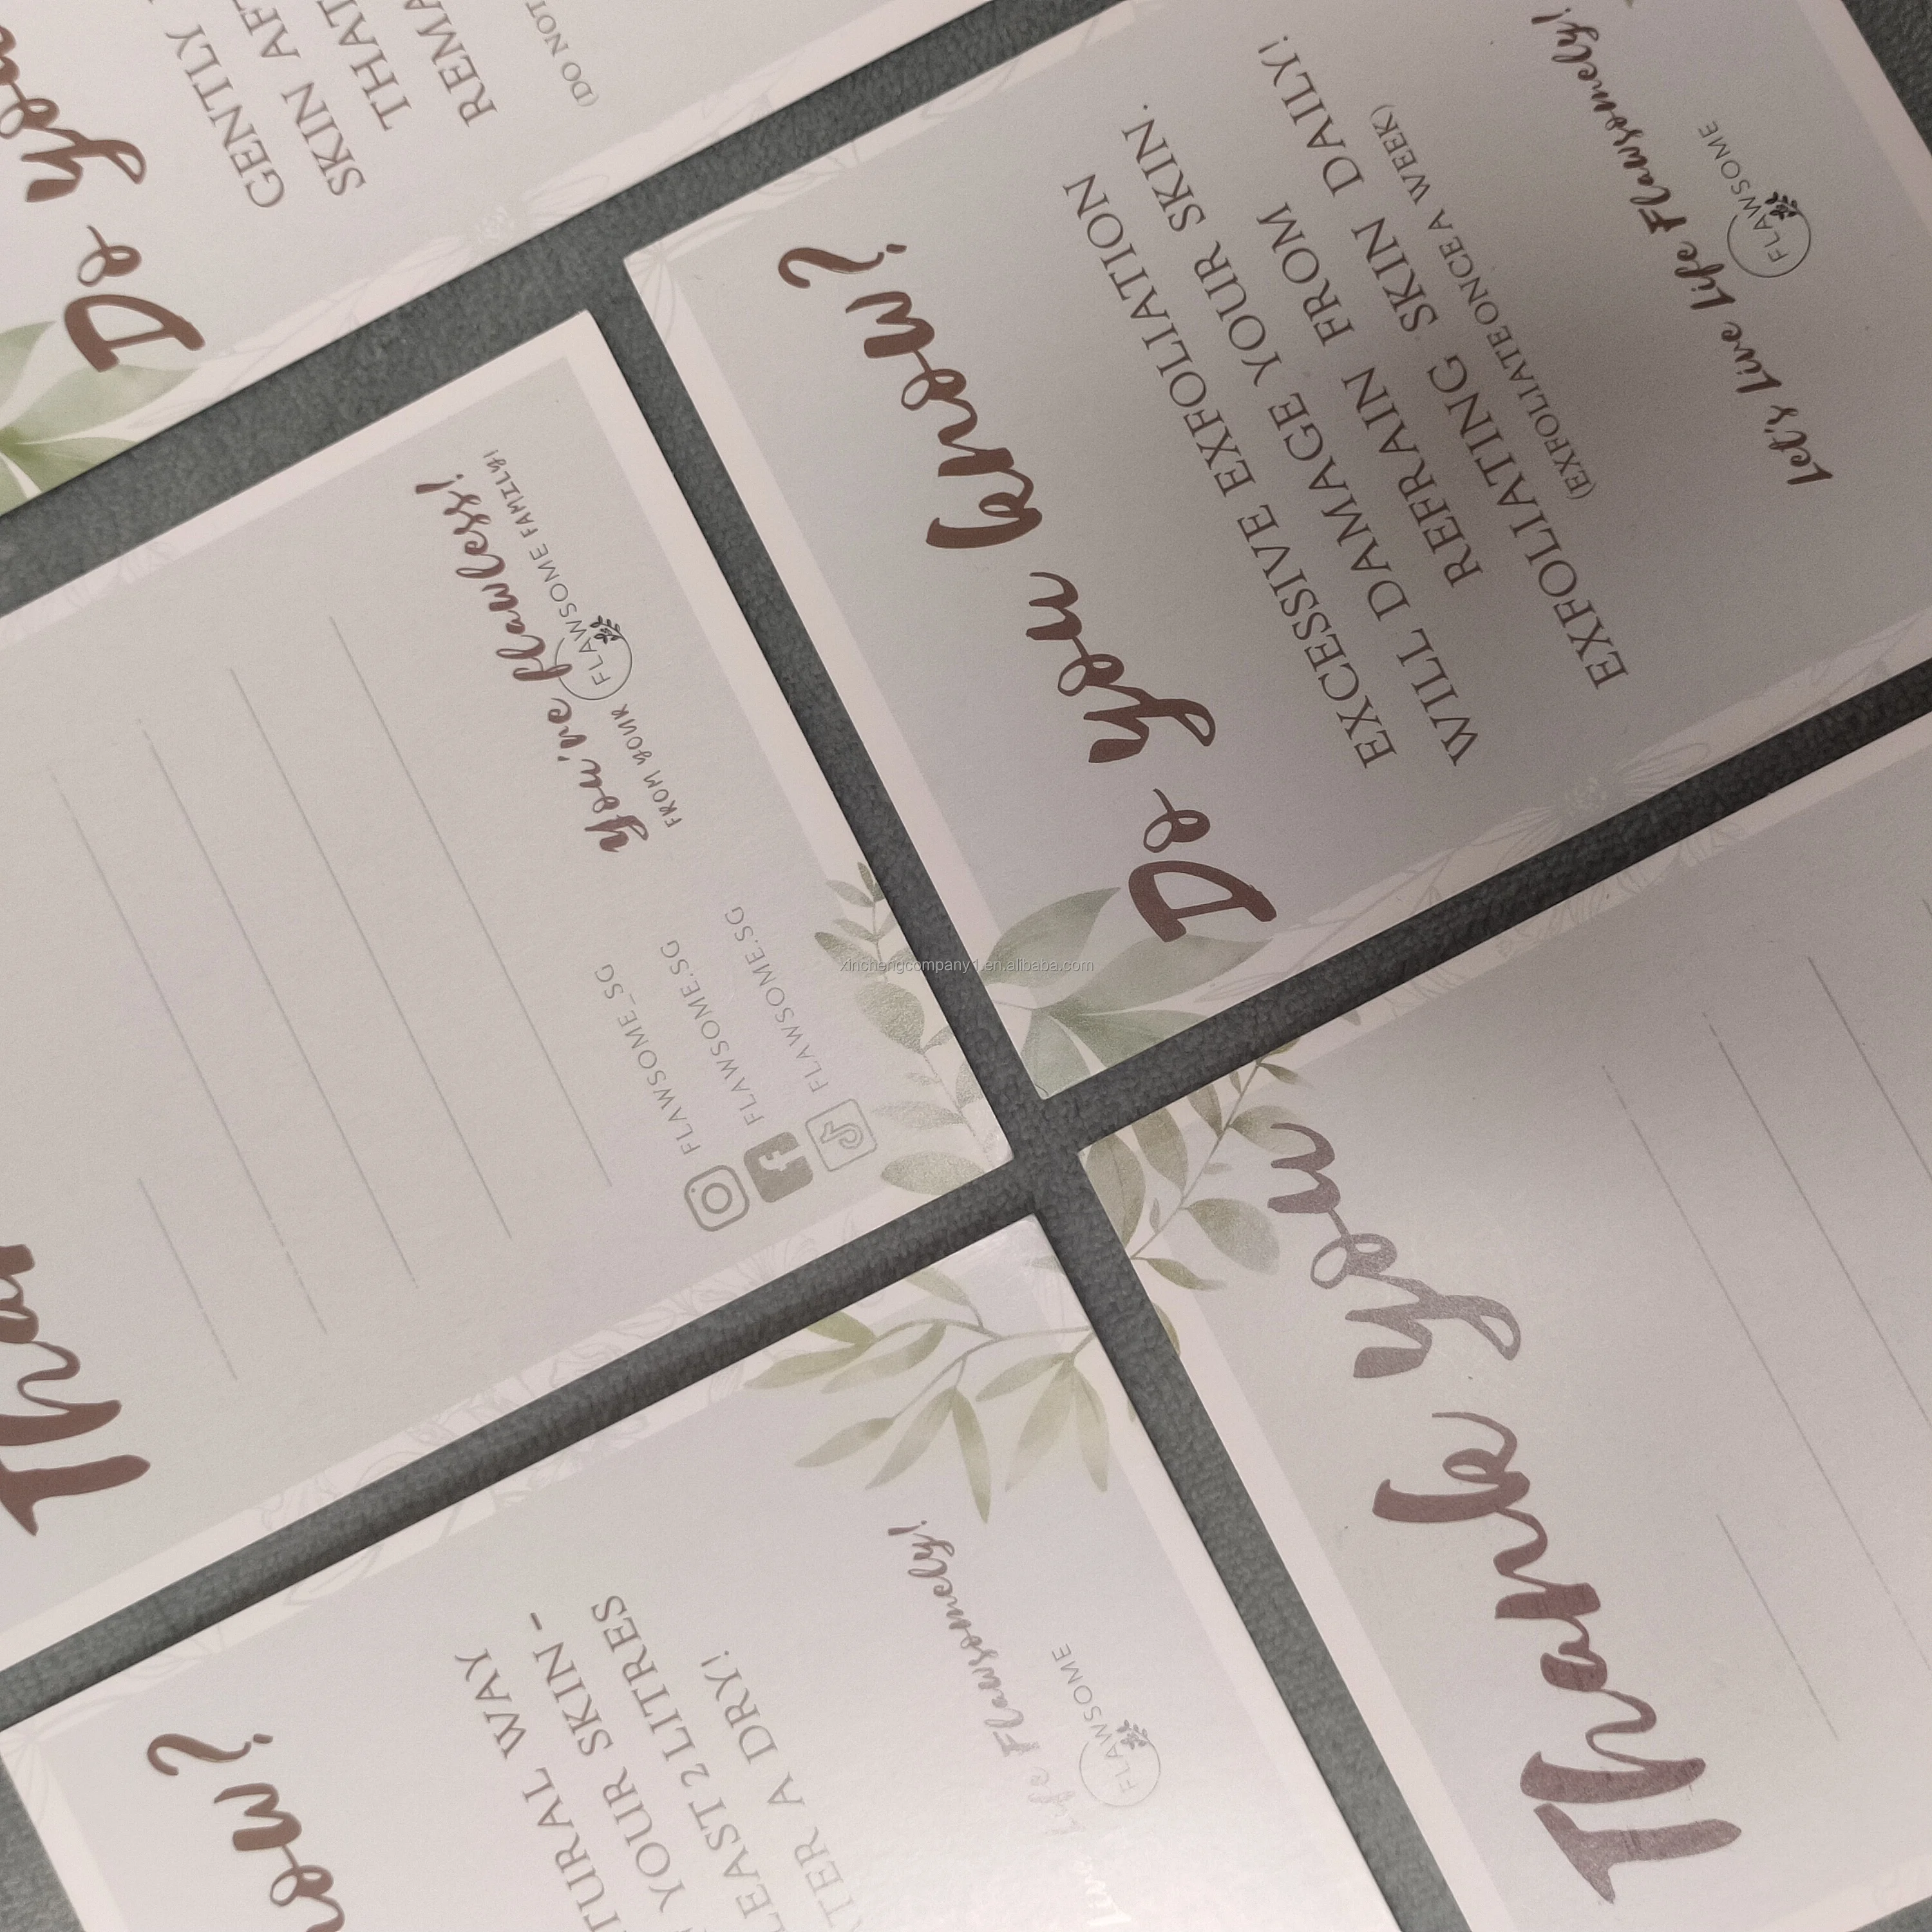 Do you
GENTLY
SKIN
THAT
(DO NOT
Do you know?
EXCESSIVE EXFOLIATION
WILL DAMAGE YOUR SKIN.
REFRAIN FROM
EXFOLIATING SKIN DAILY!
(EXFOLIATE ONCE A WEEK)
Let's Live Life Flawsomely!
FLAWSOME
you're flawless!
FROM YOUR FLAWSOME FAMILY!
FLAWSOME_SG
FLAWSOME.SG
FLAWSOME.SG
xinchengcompany1.en.alibaba.com
WAY
YOUR SKIN -
2 LITRES
A DRY!
Life Flawsomely!
FLAWSOME
Thank you